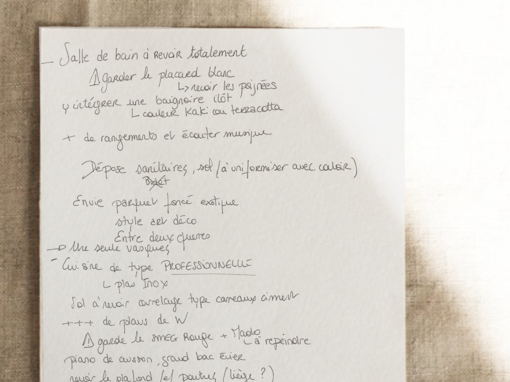 — Salle de bain à revoir totalement
⚠ garder le placard blanc
↳ revoir les poignées
↳ intégrer une baignoire îlôt
↳ couleur Kaki ou terracotta
+ de rangements et écouter musique
Dépose sanitaires, sol (à uniformiser avec couloir)
Envie parquet foncé exotique
style art déco
Entre deux guerres
→ Une seule vasque
- Cuisine de type PROFESSIONNELLE
↳ plan Inox
Sol à revoir carrelage type carreaux ciment
+++ de plans de W
⚠ garde le smeg Rouge + Mado
↳ à repeindre
piano de cuisson, grand bac Évier
revoir le plafond et poutres (liège ?)